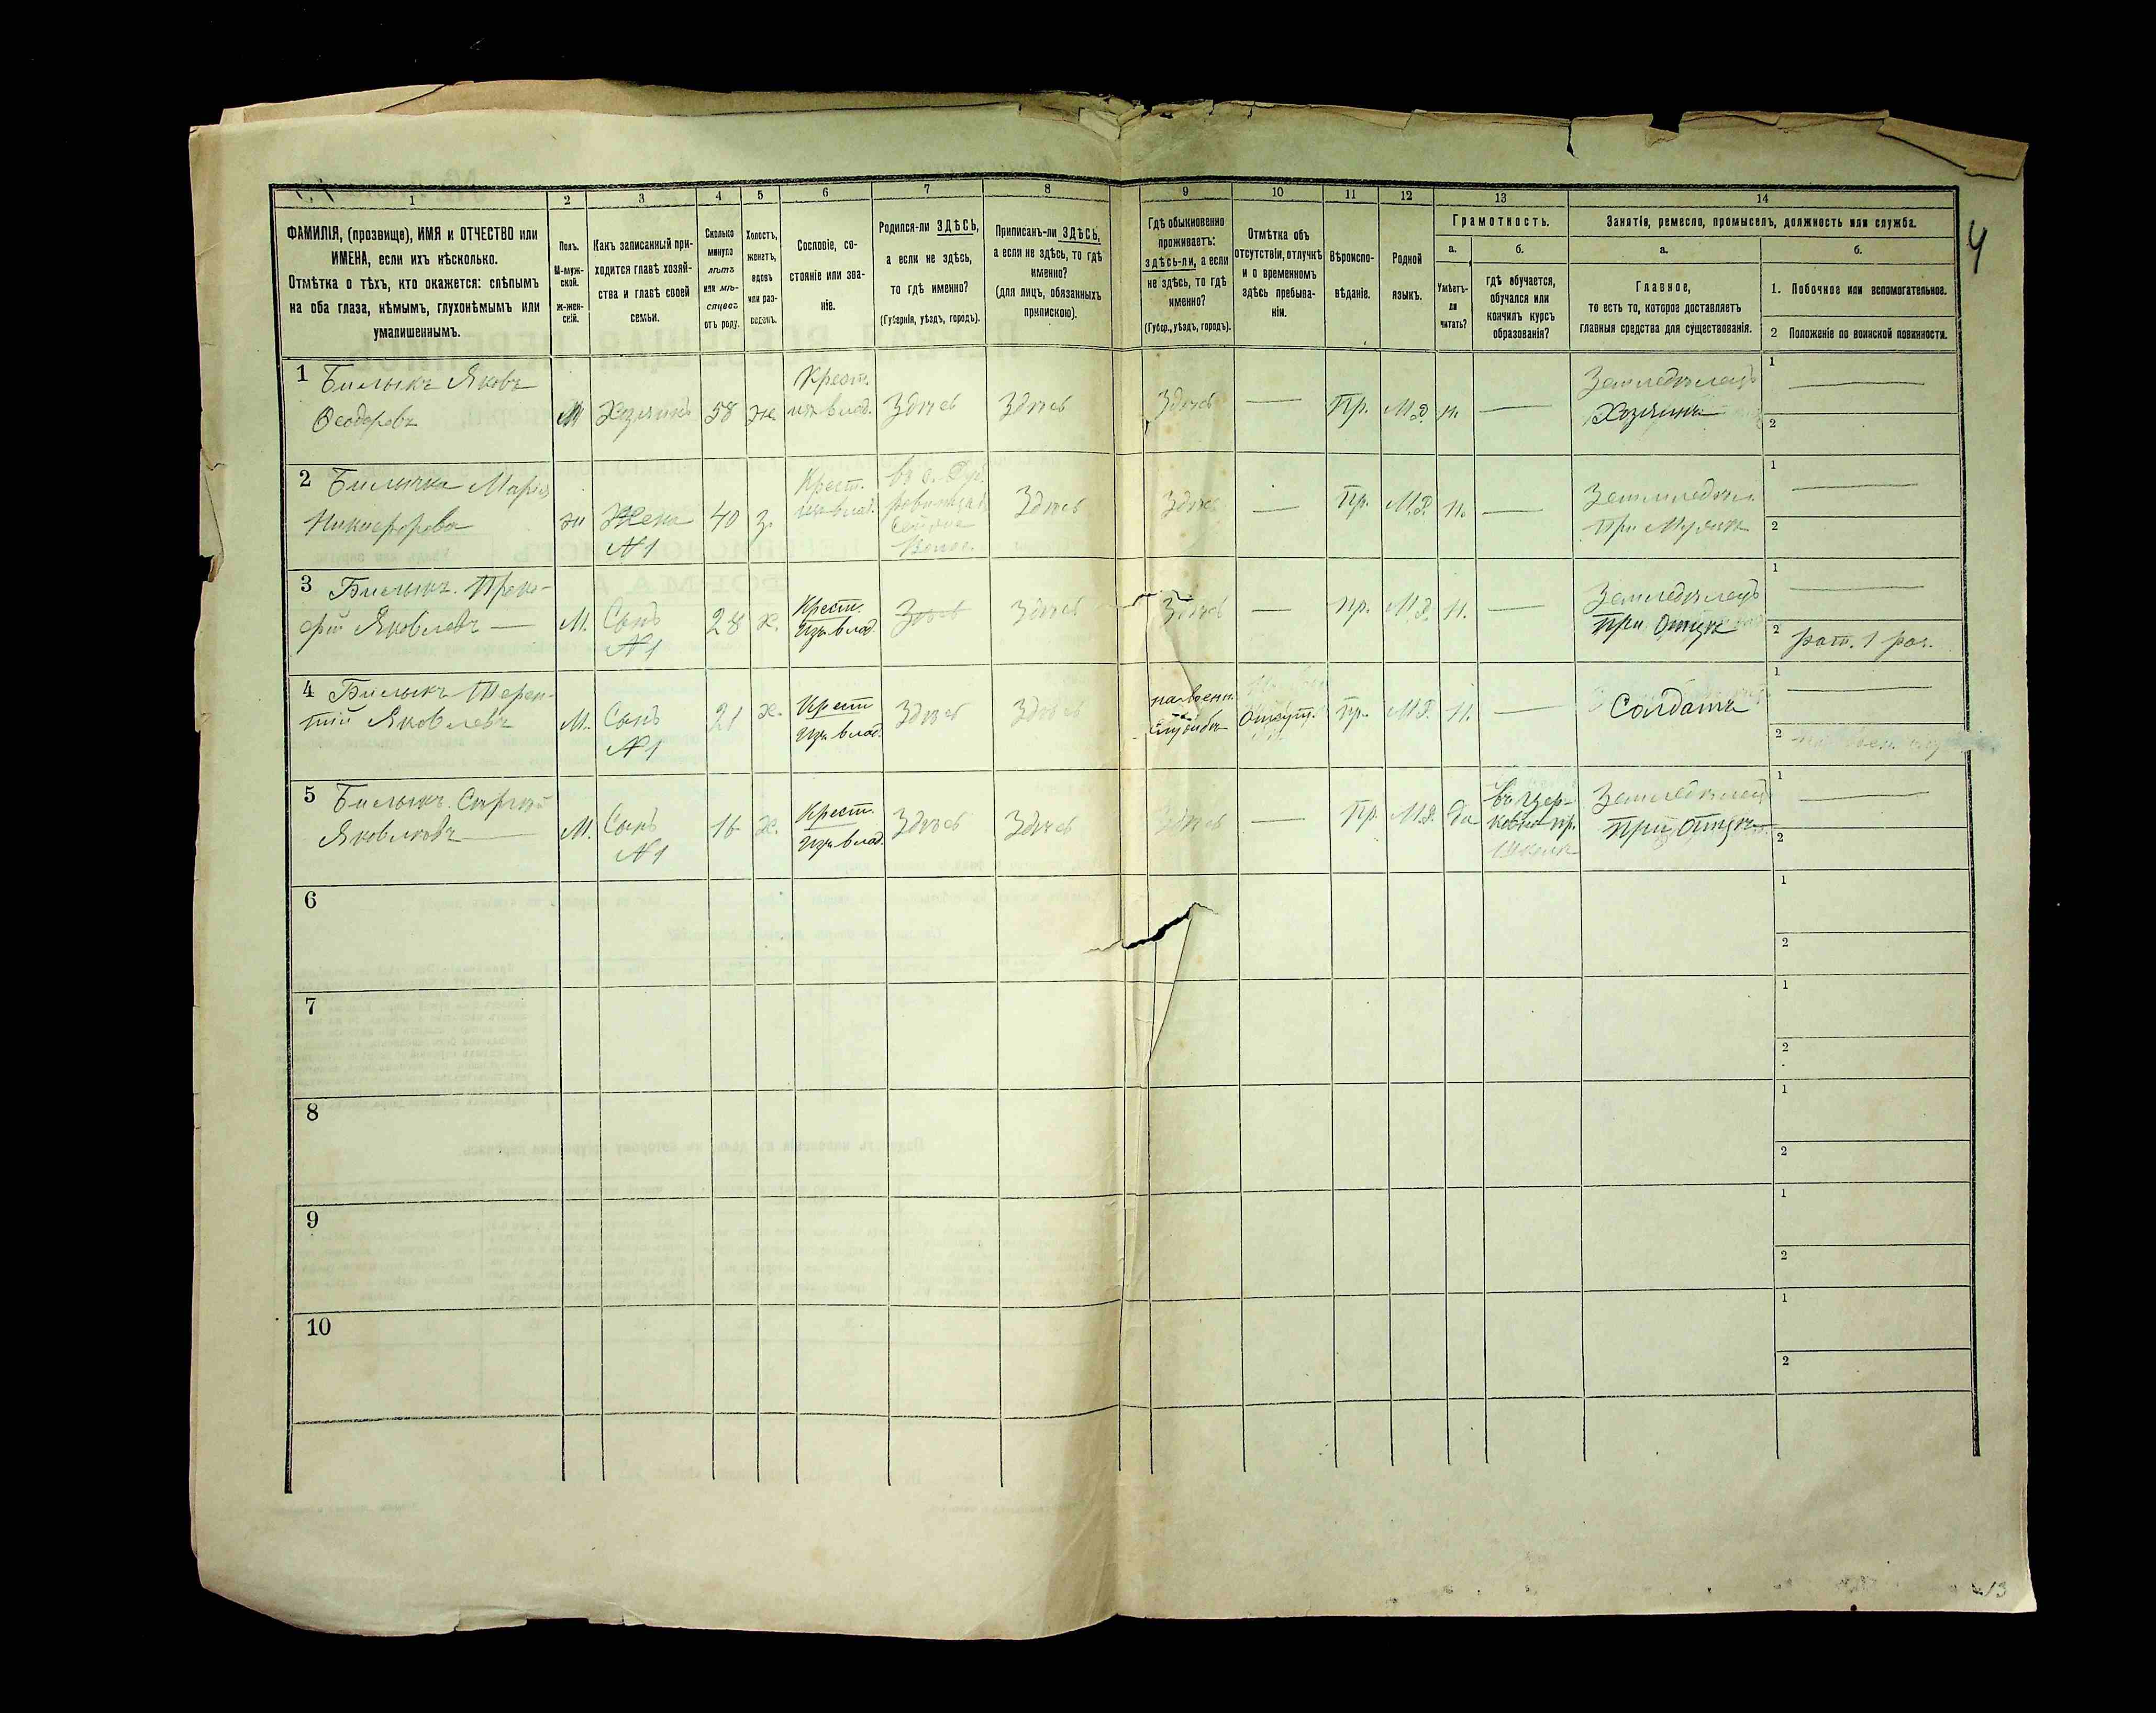 1
2
3
4
5
6
7
8
9
10
11
12
13
14
ФАМИЛІЯ, (прозвище), ИМЯ и ОТЧЕСТВО или
ИМЕНА, если ихъ нѣсколько.
Отмѣтка о тѣхъ, кто окажется: слѣпымъ
на оба глаза, нѣмымъ, глухонѣмымъ или
умалишеннымъ.
Полъ.
М-муж-
ской.
Ж-жен-
скій.
Какъ записанный при-
ходится главѣ хозяй-
ства и главѣ своей
семьи.
Сколько
минуло
лѣтъ
или мѣ-
сяцевъ
отъ роду.
Холостъ,
женатъ,
вдовъ
или раз-
веденъ.
Сословіе, со-
стояніе или зва-
ніе.
Родился-ли ЗДѢСЬ,
а если не здѣсь,
то гдѣ именно?
(Губернія, уѣздъ, городъ).
Приписанъ-ли ЗДѢСЬ,
а если не здѣсь, то гдѣ
именно?
(для лицъ, обязанныхъ
припискою).
Гдѣ обыкновенно
проживаетъ:
здѣсь-ли, а если
не здѣсь, то гдѣ
именно?
(Губер., уѣздъ, городъ).
Отмѣтка объ
отсутствіи, отлучкѣ
и о временномъ
здѣсь пребыва-
ніи.
Вѣроиспо-
вѣданіе.
Родной
языкъ.
Грамотность.
а.
Умѣетъ-
ли
читать?
б.
гдѣ обучается,
обучался или
кончилъ курсъ
образованія?
Занятія, ремесло, промыселъ, должность или служба.
а.
Главное,
то есть то, которое доставляетъ
главныя средства для существованія.
б.
1. Побочное или вспомогательное.
2 Положеніе по воинской повинности.
4
1 Билыкъ Яковъ
Ѳеодоровъ
М
Хозяинъ
58
ж.
Крест.
изъ влад.
Здѣсь
Здѣсь
Здѣсь
—
Пр.
М.Р.
н.
—
Земледѣлецъ
Хозяинъ
1 —
2
2 Билычка Марія
Никифорова
ж
Жена
№1
40
з.
Крест.
изъ влад.
Здѣсь
Здѣсь
—
Пр.
М.Р.
н.
—
Земледѣл.
при Мужѣ
1 —
2
3 Билыкъ Проко-
фій Яковлевъ —
М.
Сынъ
№1
28
х.
Крест.
изъ влад.
Здѣсь
Здѣсь
Здѣсь
—
Пр.
М.Р.
н.
—
Земледѣлецъ
при Отцѣ
1 —
2 рат. 1 раз.
4 Билыкъ Терен-
тій Яковлевъ
М.
Сынъ
№1
21
х.
Крест
изъ влад.
Здѣсь
Здѣсь
на военн.
службѣ
Отсут.
Пр.
М.Р.
н.
—
Солдатъ
1 —
2
5 Билыкъ Сергѣй
Яковлевъ —
М.
Сынъ
№1
16
х.
Крест.
изъ влад.
Здѣсь
Здѣсь
Здѣсь
—
Пр.
М.Р.
да
въ Цер-
ковно-пр.
Школѣ
Земледѣлецъ
при Отцѣ
1 —
2
6
1
2
7
1
2
8
1
2
9
1
2
10
1
2
13